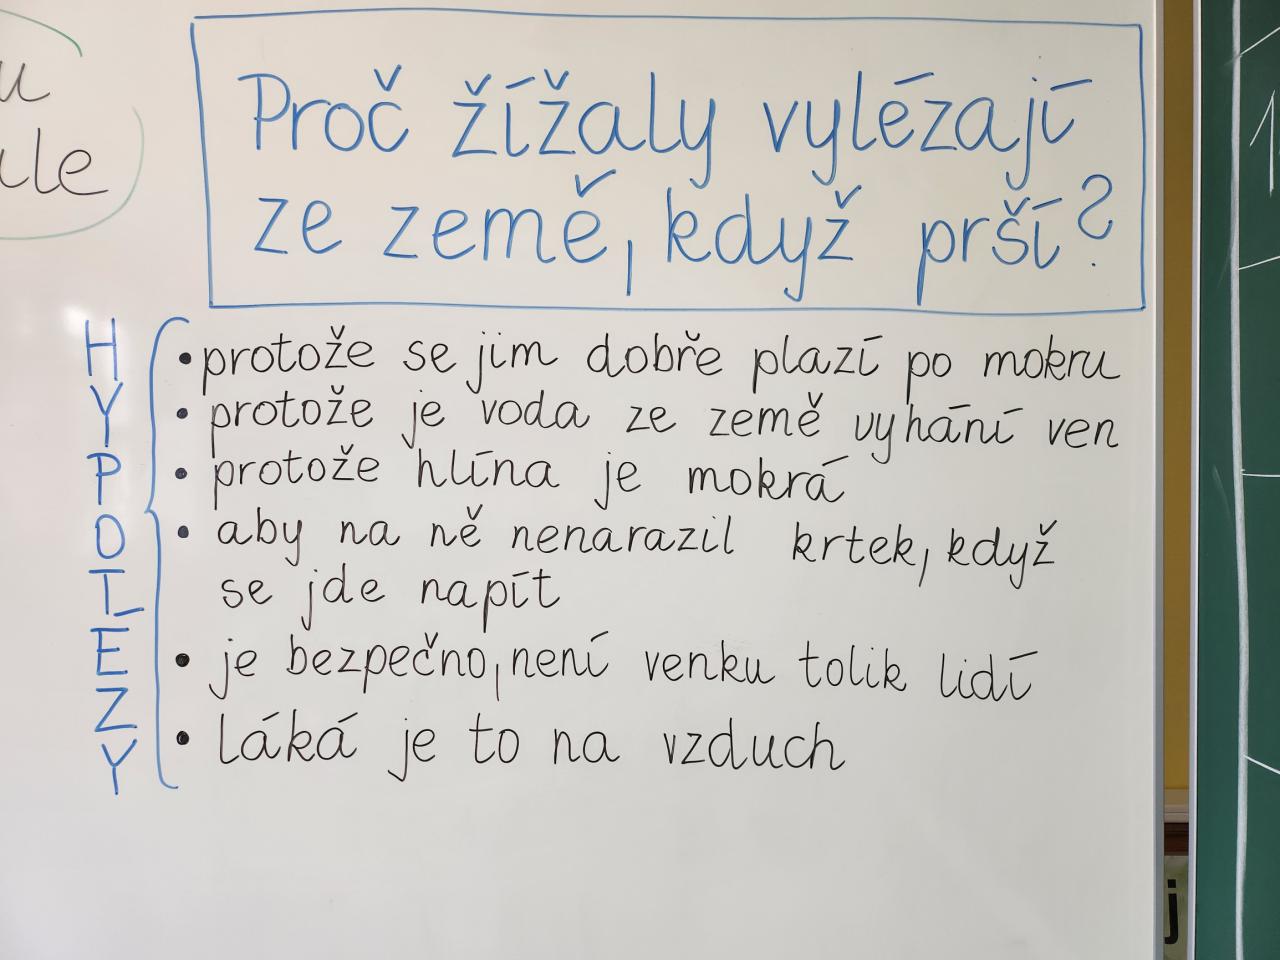 Proč žížaly vylézají
ze země, když prší?
HYPOTEZY
• protože se jim dobře plazí po mokru
• protože je voda ze země vyhání ven
• protože hlína je mokrá
• aby na ně nenarazil krtek, když
se jde napít
• je bezpečno, není venku tolik lidí
• láká je to na vzduch
u
ule
j